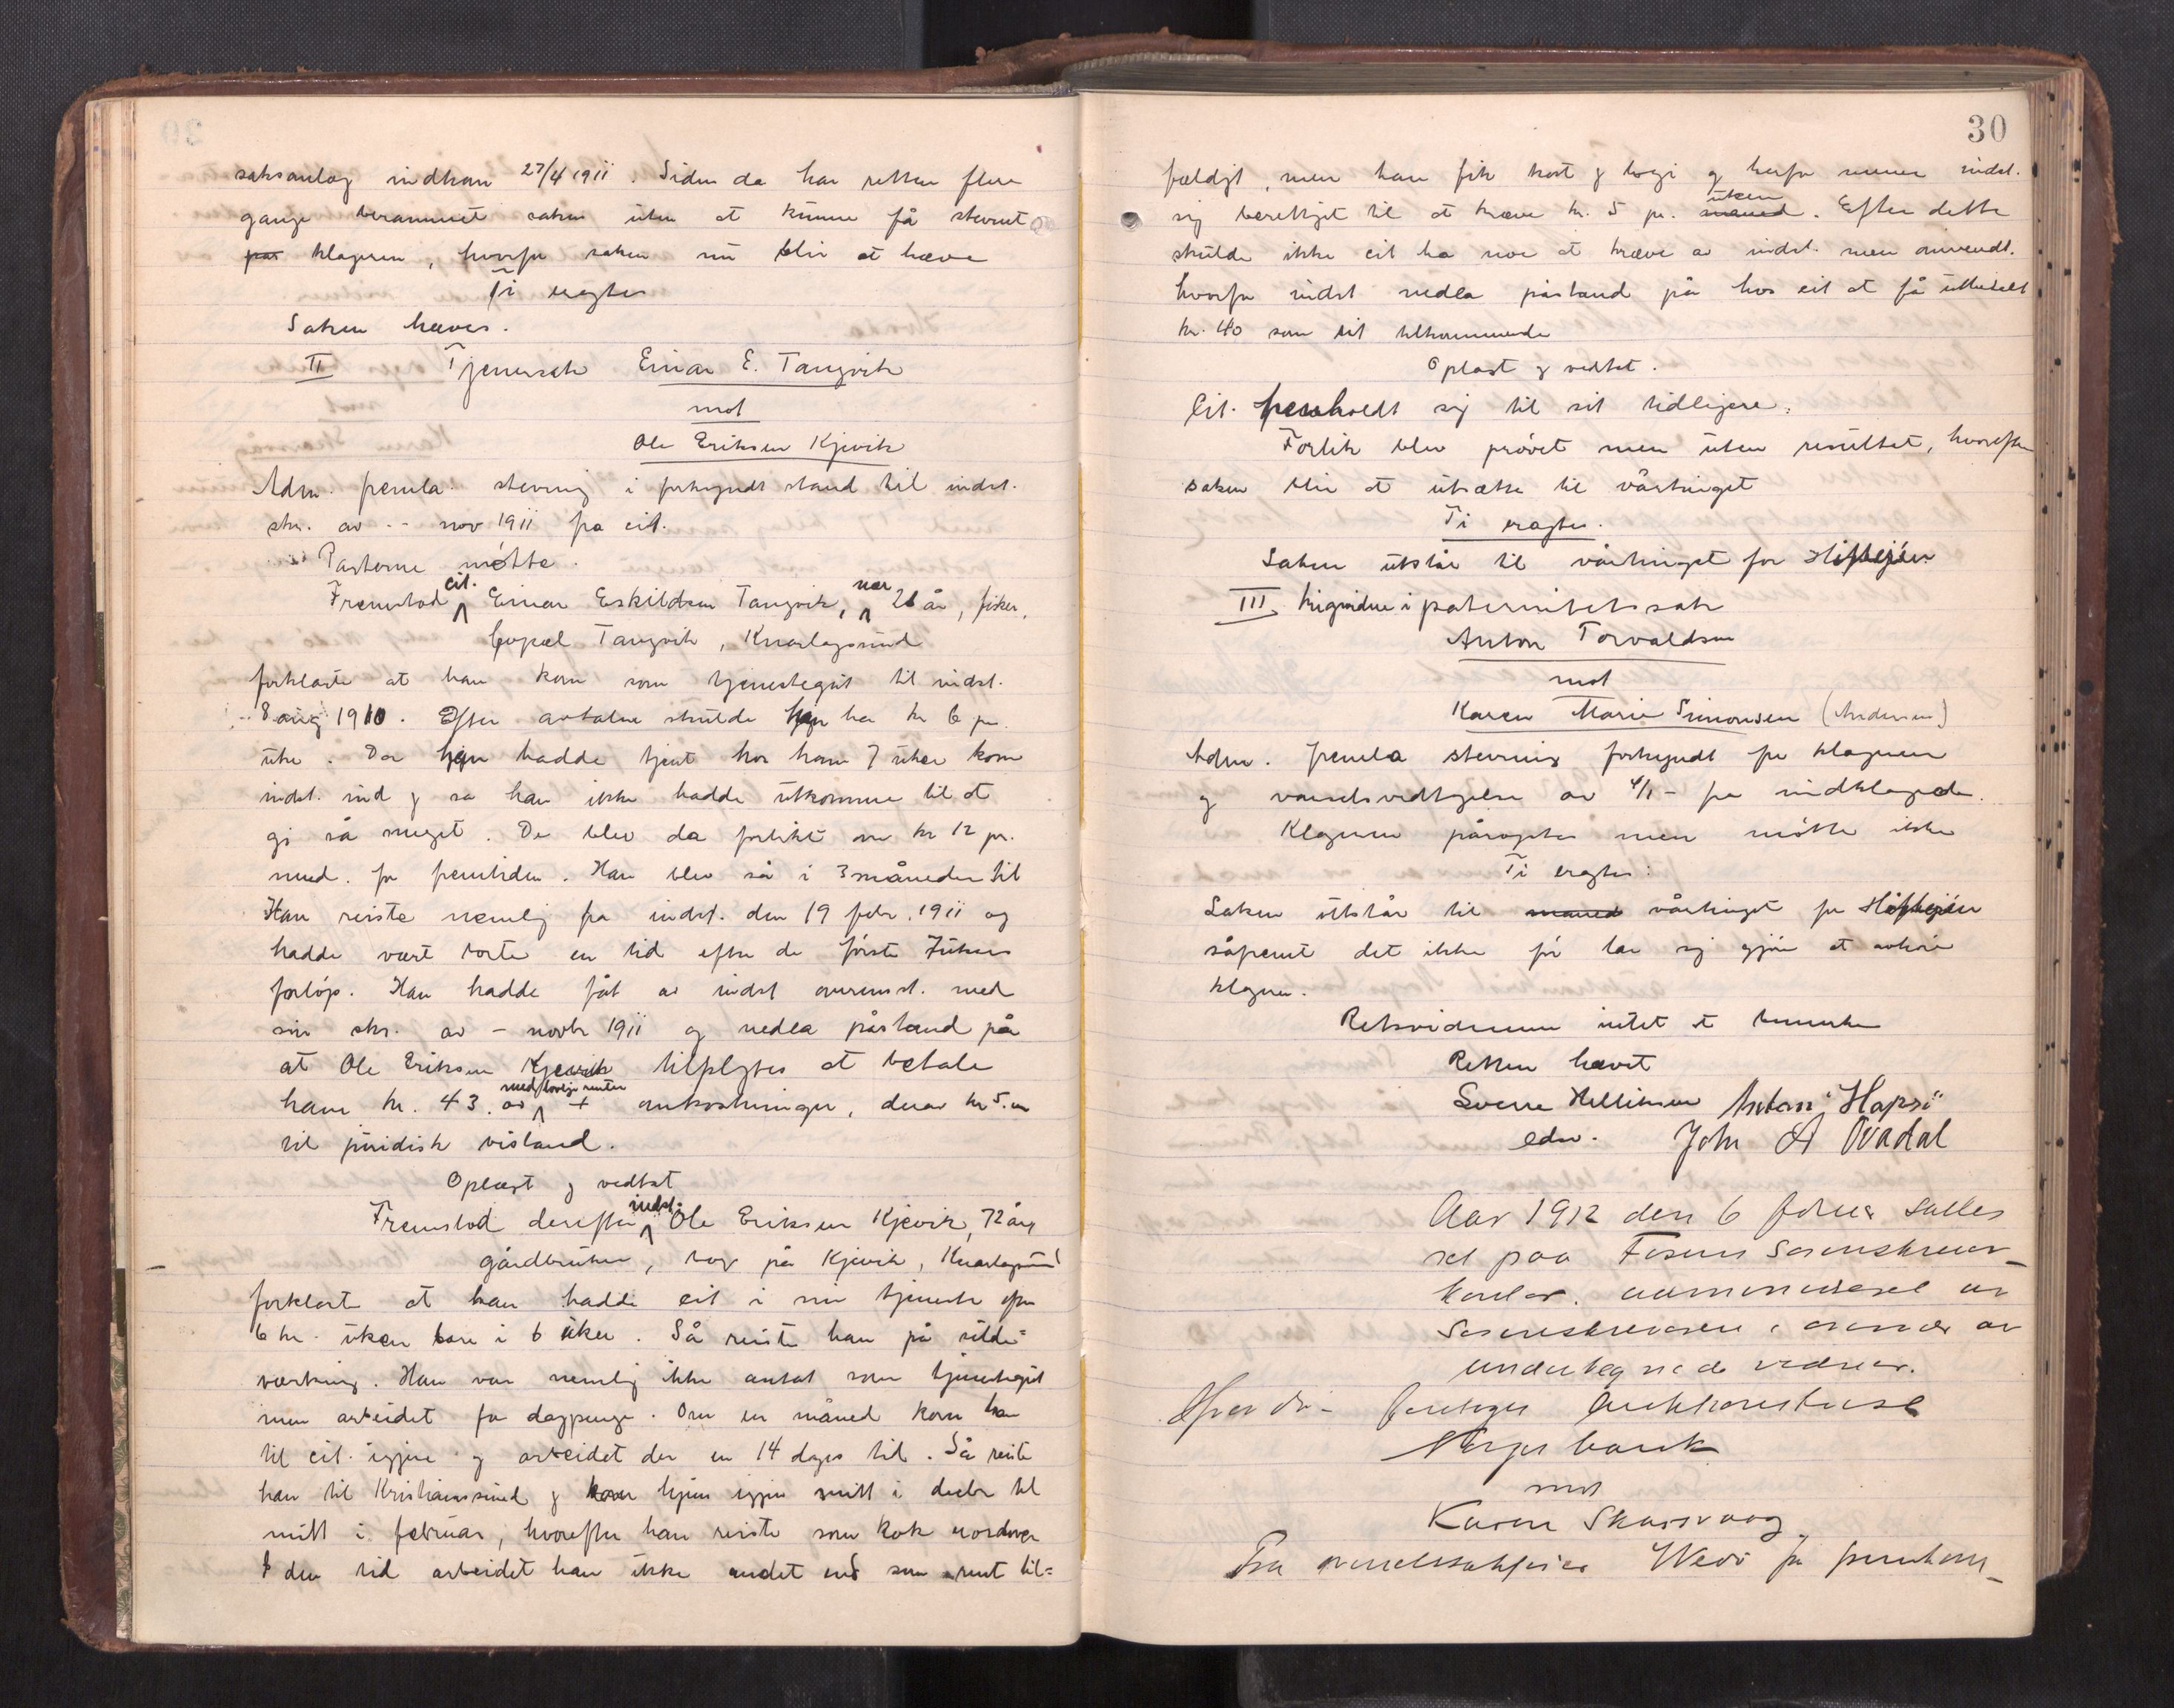 saksanlæg indkom 27/4 1911. Siden da har retten flere
gange berammet saken uten at kunne få stevnet
på klageren, hvorfor saken nu blir at hæve
Ti eragtes
Saken hæves.
II Tjenersak Einar E. Tangvik
mot
Ole Eriksen Kjevik
Adm. fremla stevning i forkyndt stand til indst.
skr. av -- nov 1911 fra cit.
Parterne møtte.
Fremstod cit. Einar Eskildsen Tangvik, nær 21 år, fisker,
bopæl Tangvik, Knarlagsund
forklarte at han kom som tjenestegut til indst.
8 aug 1910. Efter avtalen skulde han ha kr 6 pr.
uke. Da han hadde tjent hos ham 7 uker kom
indst. ind og sa han ikke hadde utkomme til at
gi så meget. De blev da forlikt om kr 12 pr.
mned. for fremtiden. Han blev så i 3 måneder til
Han reiste nemlig fra indst. den 19 febr. 1911 og
hadde vært borte en tid efter de første 7 ukers
forløp. Han hadde fåt av indst overensst. med
sin skr. av - novbr 1911 og nedla påstand på
at Ole Eriksen Kjevik tilpligtes at betale
ham kr. 43. med lovlige renter + omkostninger, derav kr 5.
til juridisk bistand.
Oplæst og vedtat
Fremstod derefter indst. Ole Eriksen Kjevik, 72 år,
gårdbruker, bor på Kjevik, Knarlagsund
forklart at han hadde cit i sin tjeneste efter
6 kr. uken bare i 6 uker. Så reiste han på silde=
værking. Han var nemlig ikke antat som tjenestegut
men arbeidet for dagpenge. Om en måned kom han
til cit. igjen og arbeidet der en 14 dages tid. Så reiste
han til Kristianssund og kom hjem igjen midt i decbr til
midt i februar, hvorefter han reiste som kok nordover
I den tid arbeidet han ikke andet end som rent til=
30
fældigt, men han fik kost og logi og herfor mener indst.
sig berettiget til at kræve kr. 5 pr. måned uken. Efter dette
skulde ikke cit ha noe at kræve av indst. men omvendt.
hvorfor indst nedla påstand på hos cit at få utbetalt
kr. 40 som sit tilkommende
Oplæst og vedtat.
Cit. fremholdt sig til sit tidligere.
Forlik blev prøvet men uten resultat, hvorefter
saken blir at utsætte til vårtinget
Ti eragtes.
Saken utstår til vårtinget for
III i paternitetssak
Anton Torvaldsen
mot
Karen Marie Simonsen (Andersen)
Adm. fremla stevning forkyndt for klageren
og varselsvedtagelse av fra indklagede.
Klageren påroptes men møtte ikke
Ti eragtes:
Saken utstår til måned vårtinget for
såfremt det ikke før lar sig gjøre at avhøre
klageren.
Retsvidnerne intet at bemerke
Retten hævet
Sverre
edsv. John A
Aar 1912 den 6 februar sattes
ret paa Fosens Sorenskriver-
kontor. administreret av
Sorenskriveren i overvær av
undertegnede vidner.
Hvorda: foretoges
Norges bank
mot
Karen Skarsvaag
Fra overretssakfører fremkom-